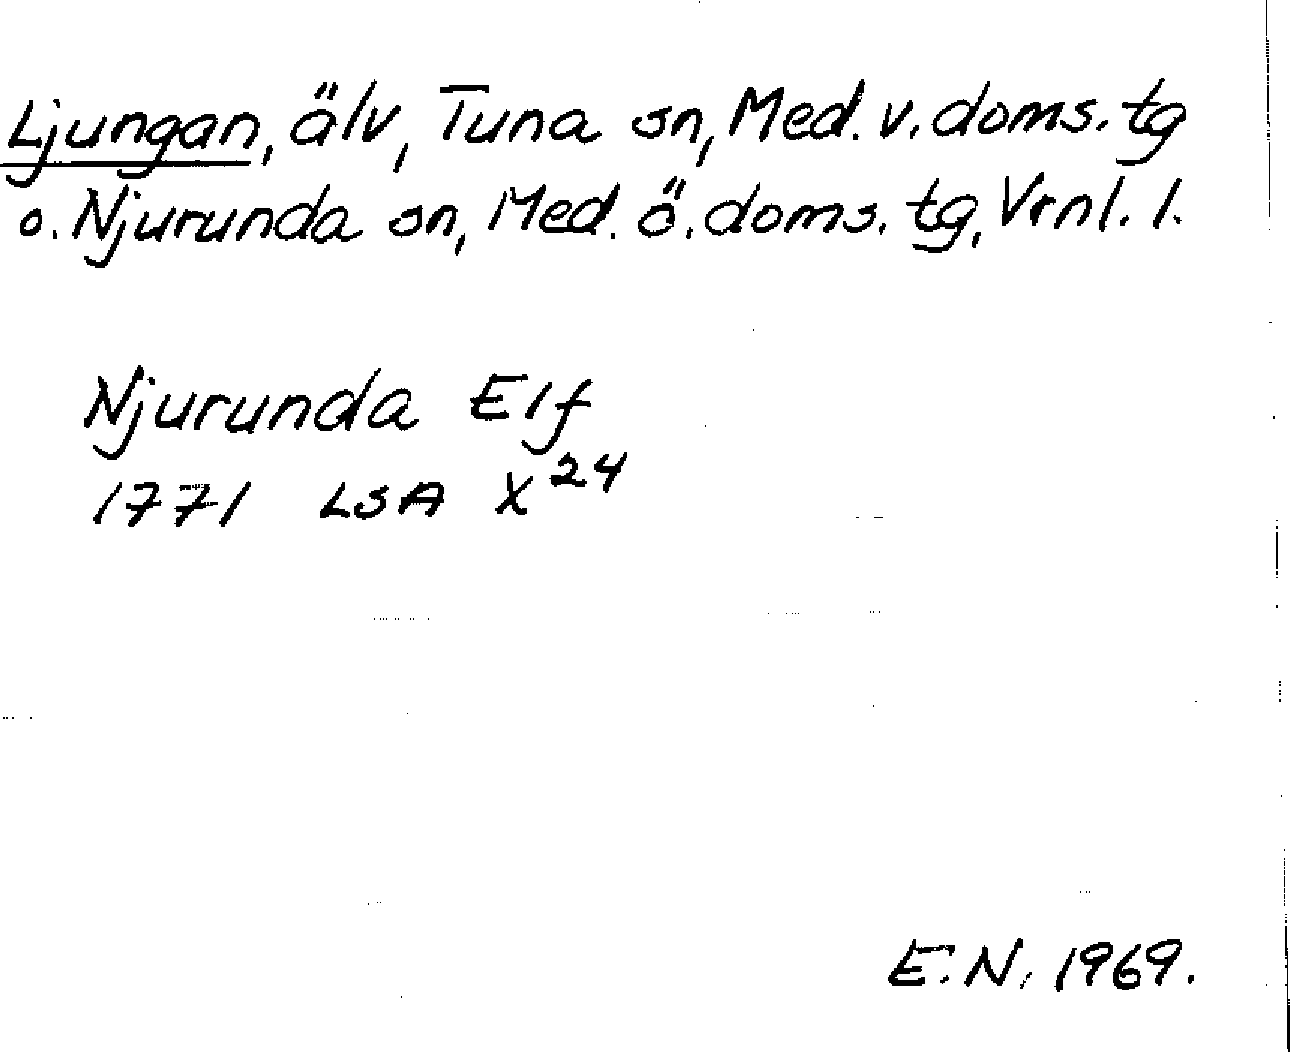 Ljungan, älv, Tuna sn, Med. v. doms. tg
o. Njurunda sn, Med. ö. doms. tg, Vrnl. l.
Njurunda Elf
1771 LSA X²⁴
E.N. 1969.